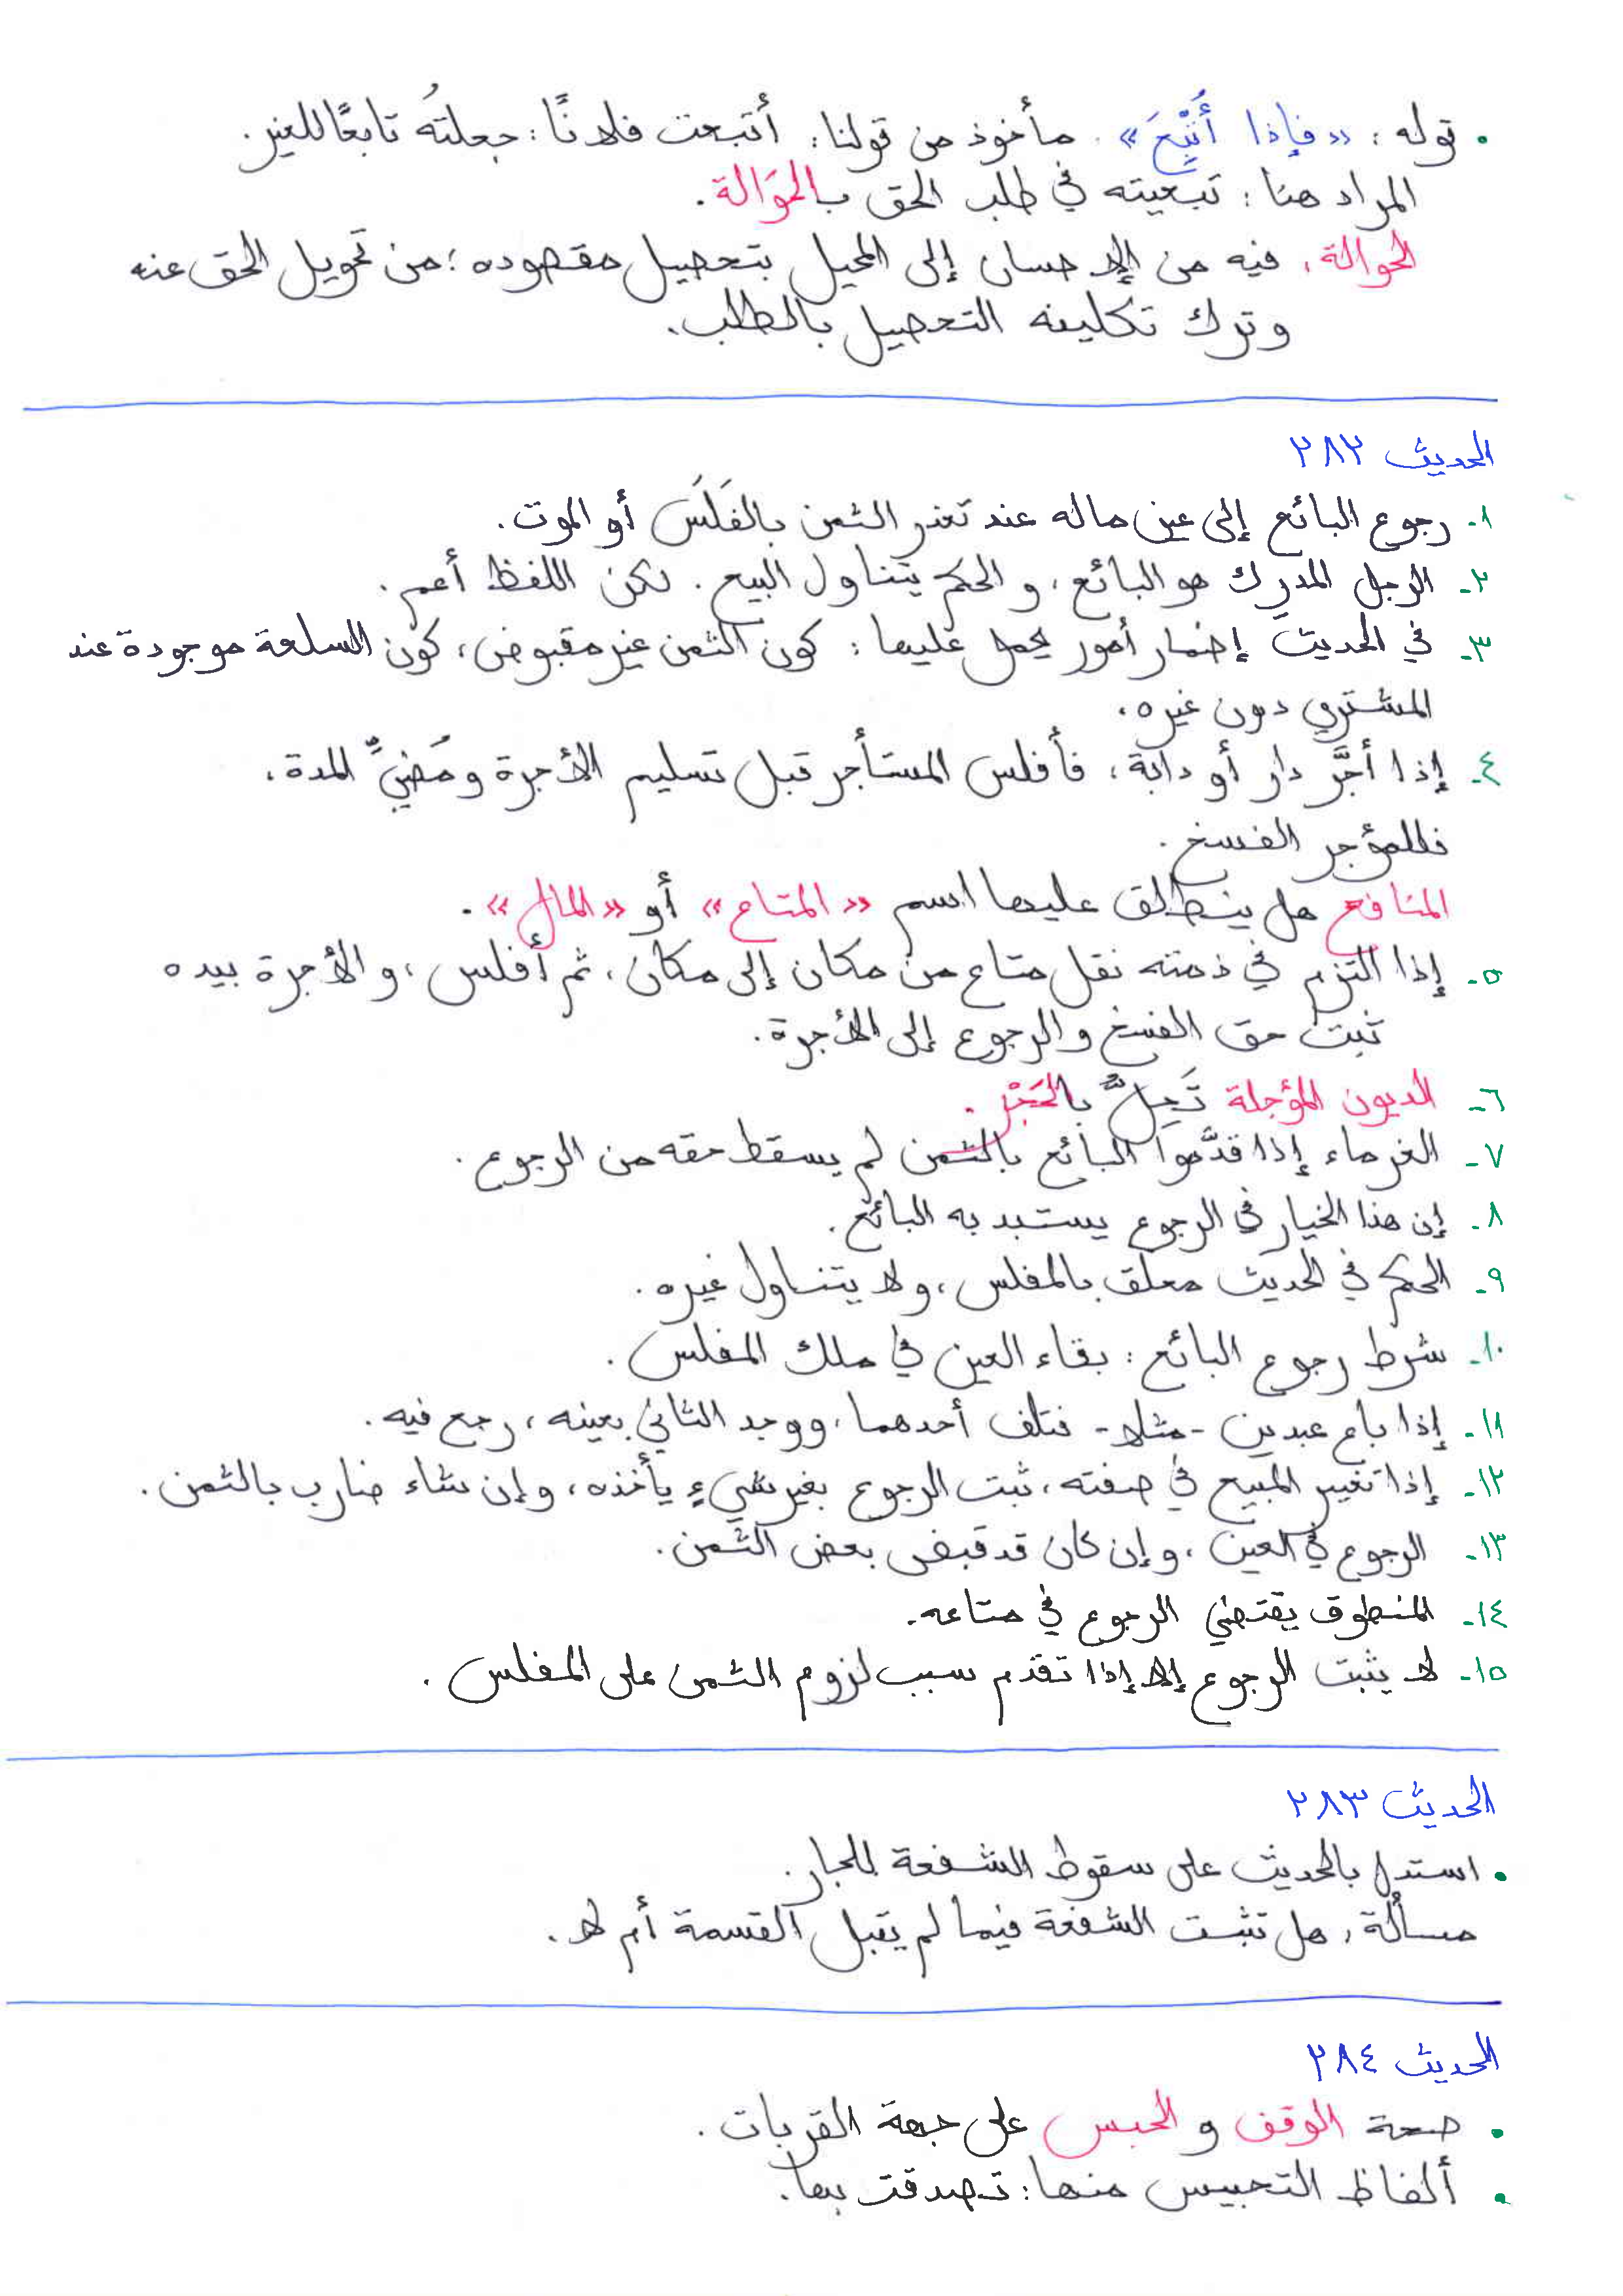 • قوله: «فإذا أُتْبِعَ». مأخوذ من قولنا: أتبعت فلانًا: جعلتُه تابعًا للغير.
المراد هنا: تبعيته في طلب الحق بالحَوَالة.
الحوالة، فيه من الإحسان إلى المحيل بتحصيل مقصوده؛ من تحويل الحق عنه
وترك تكليفه التحصيل بالطلب.
الحديث ٢٨٢
١- رجوع البائع إلى عين ماله عند تعذر الثمن بالفَلَس أو الموت.
٢- الرجل المدرك هو البائع، والحكم يتناول البيع. لكن اللفظ أعم.
٣- في الحديث إضمار أمور يحمل عليها: كون الثمن غير مقبوض، كون السلعة موجودة عند
المشتري دون غيره.
٤- إذا أجَّر دار أو دابة، فأفلس المستأجر قبل تسليم الأجرة ومُضيِّ المدة،
فللمؤجر الفسخ.
المنافع هل ينطلق عليها اسم «المتاع» أو «المال».
٥- إذا التزم في ذمته نقل متاع من مكان إلى مكان، ثم أفلس، والأجرة بيده
ثبت حق الفسخ والرجوع إلى الأجرة.
٦- الديون المؤجلة تَحِلُّ بالحَجْر.
٧- الغرماء إذا قدَّموا البائع بالثمن لم يسقط حقه من الرجوع.
٨- إن هذا الخيار في الرجوع يستبد به البائع.
٩- الحكم في الحديث معلق بالمفلس، ولا يتناول غيره.
١٠- شرط رجوع البائع: بقاء العين في ملك المفلس.
١١- إذا باع عبدين -مثلا- فتلف أحدهما، ووجد الثاني بعينه، رجع فيه.
١٢- إذا تغير المبيع في صفته، ثبت الرجوع بغير شيءٍ يأخذه، وإن شاء ضارب بالثمن.
١٣- الرجوع في العين، وإن كان قد قبض بعض الثمن.
١٤- المنطوق يقتضي الرجوع في متاعه.
١٥- لا يثبت الرجوع إلا إذا تقدم سبب لزوم الثمن على المفلس.
الحديث ٢٨٣
• استدل بالحديث على سقوط الشفعة للجار.
مسألة، هل تثبت الشفعة فيما لم يقبل القسمة أم لا.
الحديث ٢٨٤
• صحة الوقف والحبس على جهة القربات.
• ألفاظ التحبيس منها: تصدقت بها.